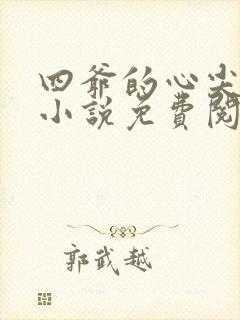 四爷的心尖
小說免費閱
郭武越